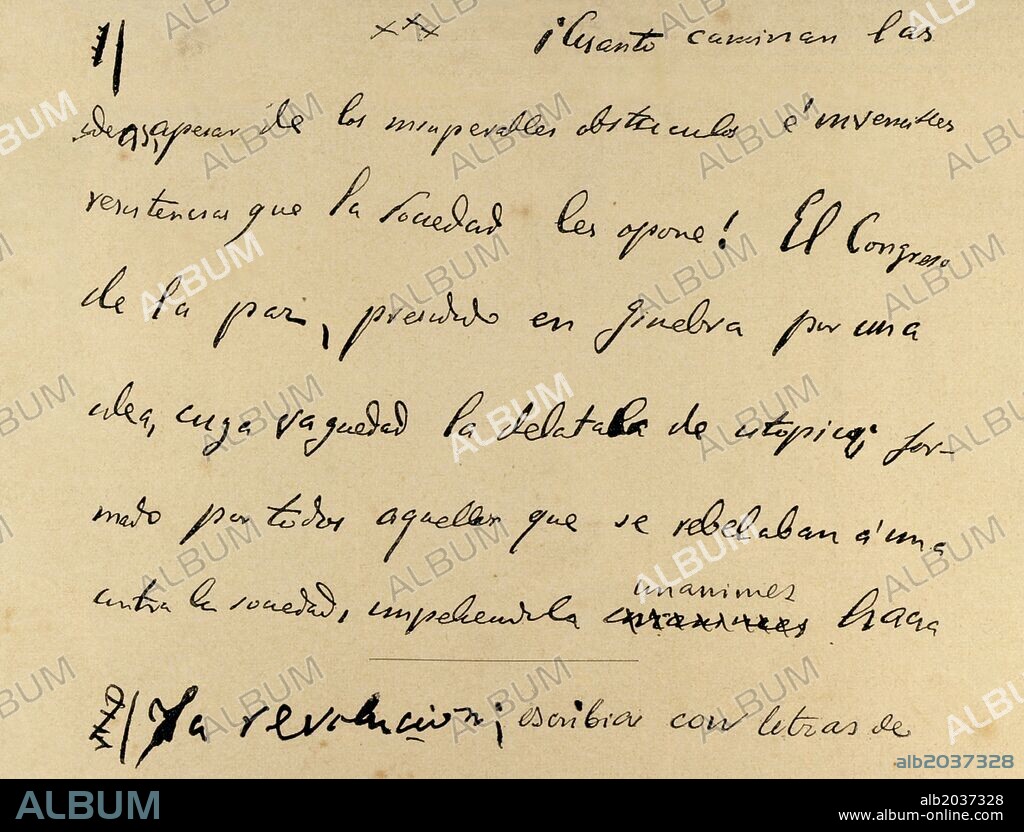 1/ xxx ¡Cuanto caminan las
ideas, apesar de los insuperables obstaculos é invencibles
resistencias que la sociedad les opone! El Congreso
de la paz, presidido en Ginebra por una
idea, cuya vaguedad la delataba de utopica; for-
mado por todos aquellos que se rebelaban á una
contra la sociedad, impeliendola
unanimes
hacia
la revolucion; escribia con letras de
ALBUM
alb2037328
ALBUM
alb2037328
www.album-online.com